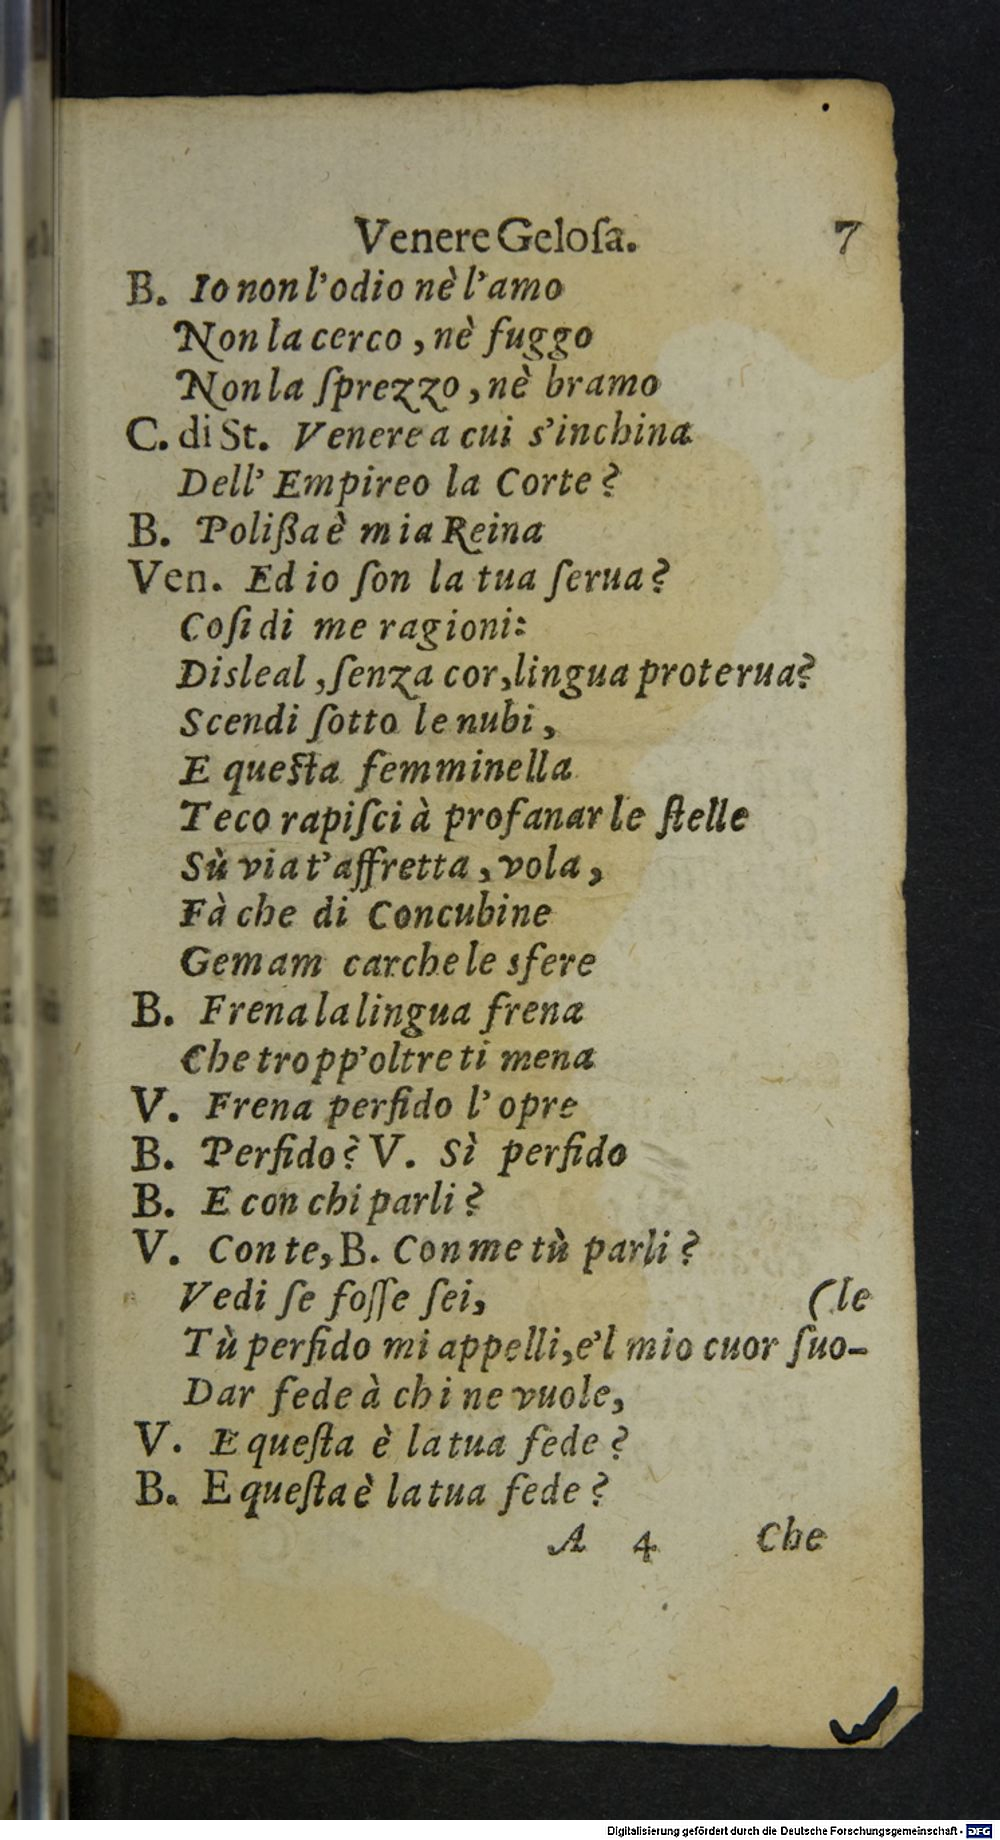 Venere Geloſa. 7
B. Io non l'odio nè l'amo
Non la cerco, nè fuggo
Non la ſprezzo, nè bramo
C. di St. Venere a cui s'inchina
Dell' Empireo la Corte?
B. Polißa è mia Reina
Ven. Ed io ſon la tua ſerua?
Coſi di me ragioni:
Disleal, ſenza cor, lingua proterua?
Scendi ſotto le nubi,
E queſta femminella
Teco rapiſci à profanar le ſtelle
Sù via t'affretta, vola,
Fà che di Concubine
Gemam carche le sfere
B. Frena la lingua frena
Che tropp'oltre ti mena
V. Frena perfido l'opre
B. Perfido? V. Sì perfido
B. E con chi parli?
V. Con te, B. Con me tù parli?
Vedi ſe foſſe ſei, (le
Tù perfido mi appelli, e'l mio cuor ſuo-
Dar fede à chi ne vuole,
V. E queſta è la tua fede?
B. E queſta è la tua fede?
A 4 Che
Digitalisierung gefördert durch die Deutsche Forschungsgemeinschaft - DFG